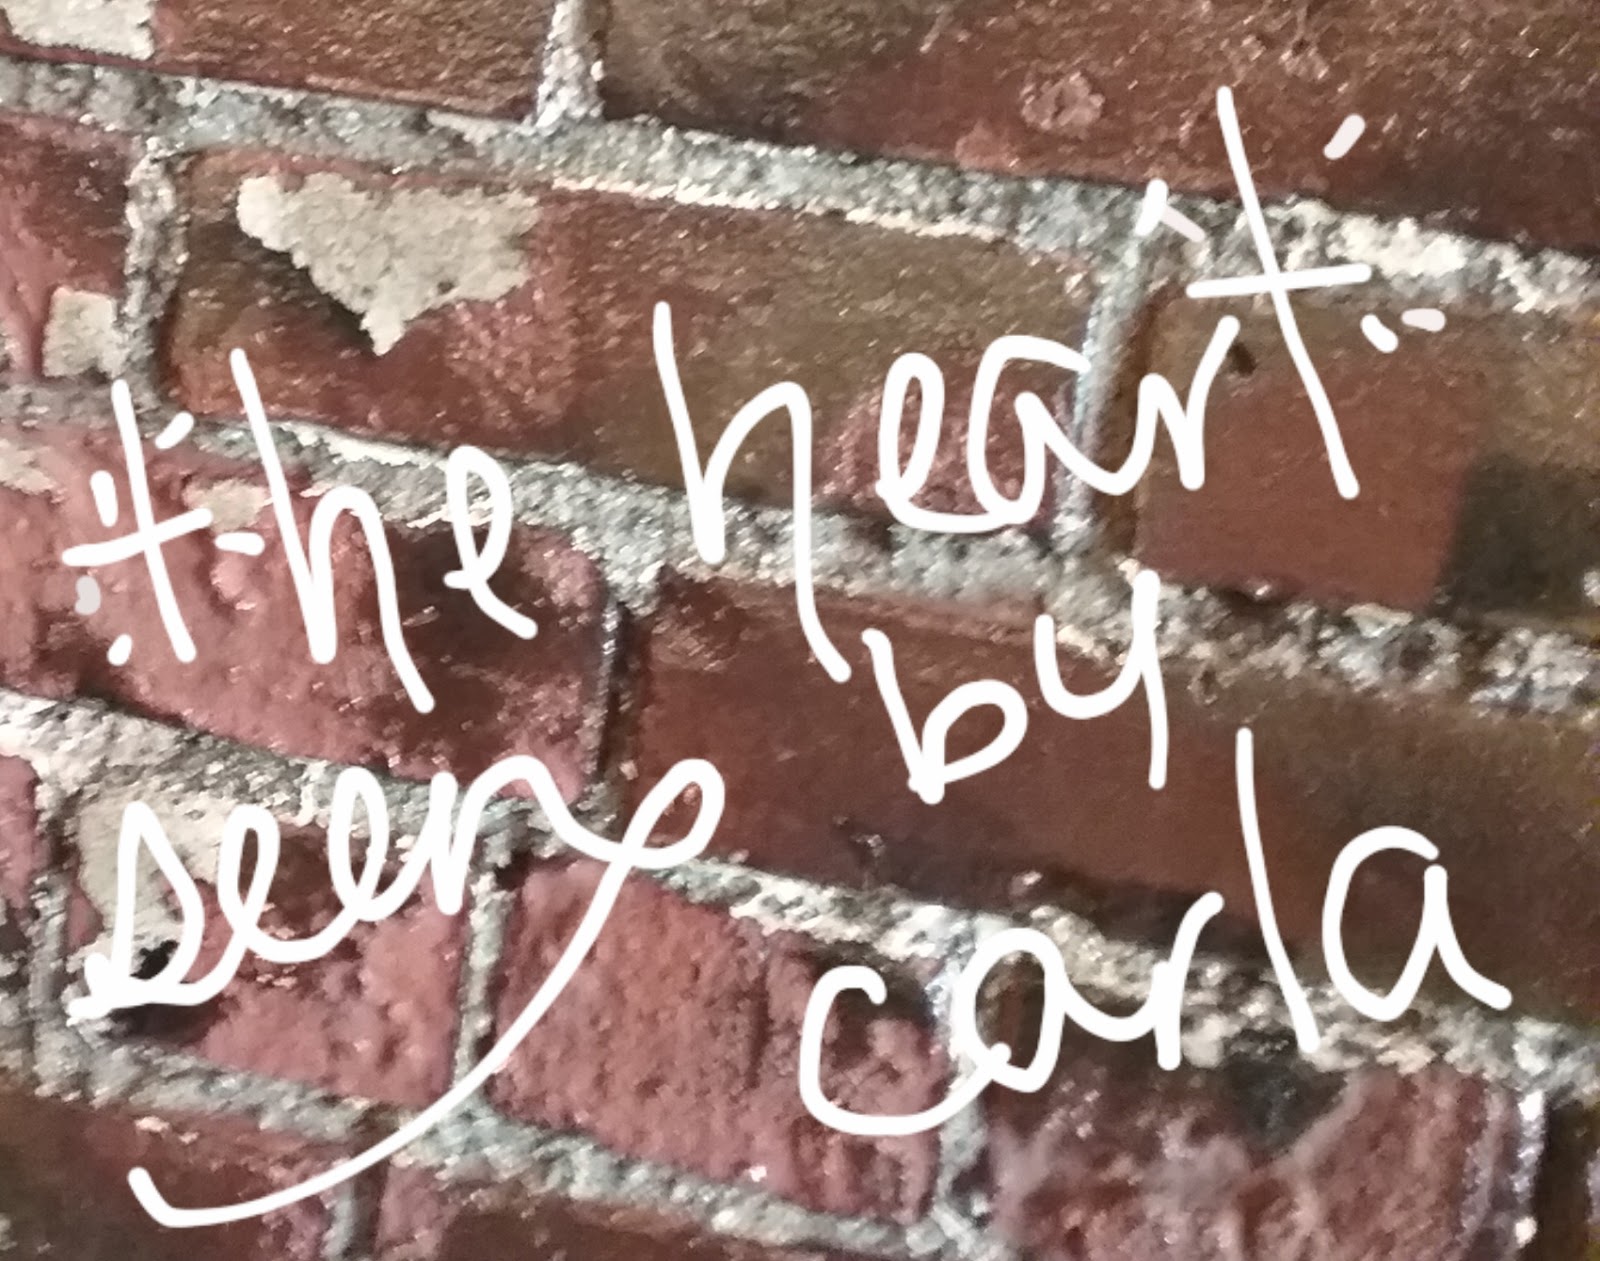 the heart
seen by
carla